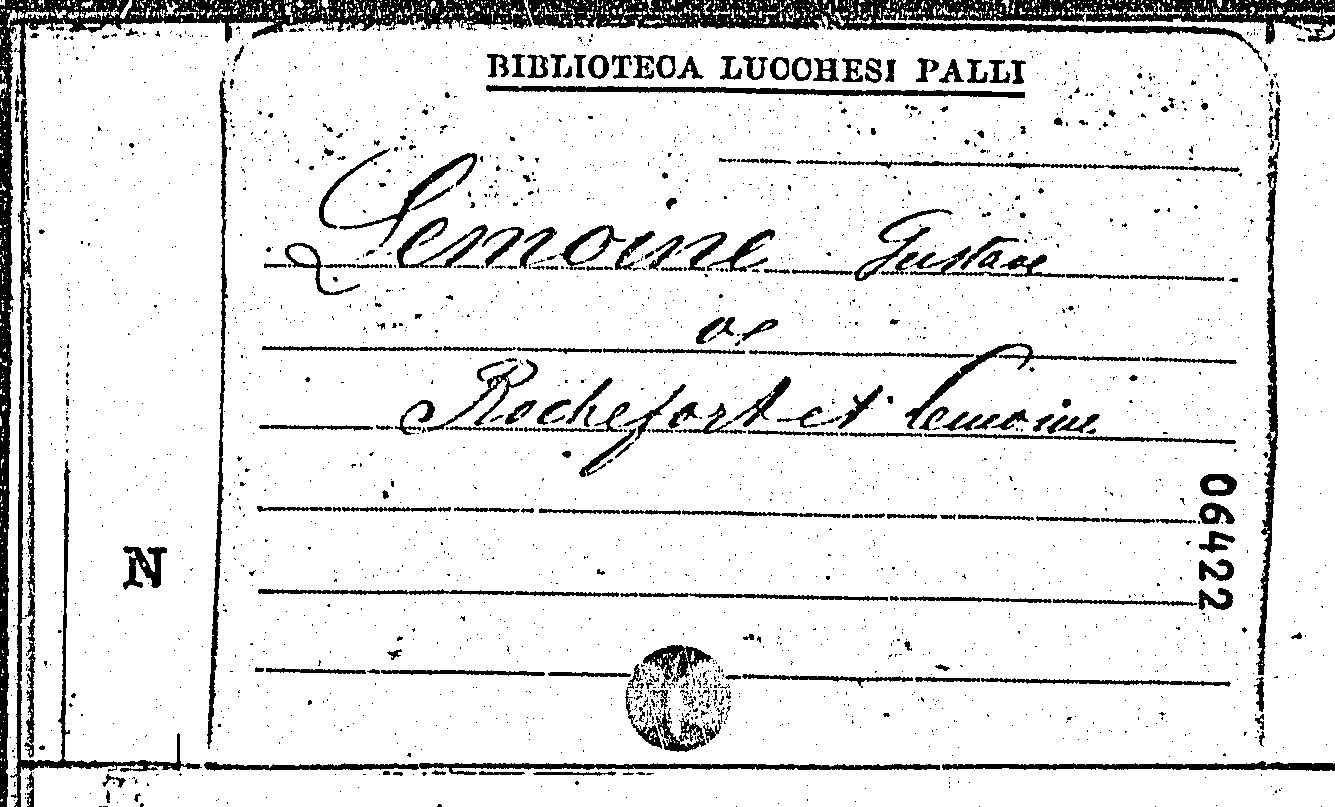 BIBLIOTECA LUCCHESI PALLI
Lemoine Gustave
Rochefort et Lemoine
06422
N